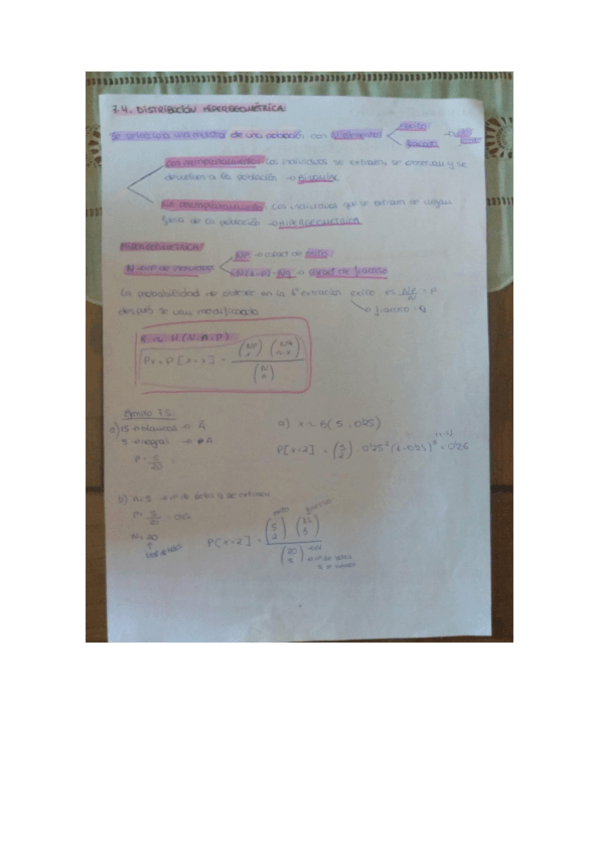 7.4. DISTRIBUCIÓN HIPERGEOMÉTRICA:
Se selecciona una muestra de una población con elementos éxito
fracaso
Con reemplazamiento: los individuos se extraen, se observan y se
devuelven a la población → BINOMIAL
No reemplazamiento: los individuos que se extraen se dejan
fuera de la población → HIPERGEOMÉTRICA
HIPERGEOMÉTRICA:
N → nº de individuos
NP → caract de éxito
N(1-P) = NQ → caract de fracaso
La probabilidad de obtener en la 1ª extracción éxito es NP/N = P
después se van modificando
fracaso = Q
X ~ H(N, n, P)
Px = P[X=x] = (NP x) (NQ n-x) / (N n)
Ejemplo 7.5.
a) 15 → blancas → Ā
5 → negras → A
P = 5/20
a) x ~ B(5, 0'25)
P[x=2] = (5 2) · 0'25² (1-0'25)³ = 0'26
b) n=5 → nº de bolas q se extraen
P = 5/20 = 0'25
N = 20
P[x=2] = (5 2) (15 3) / (20 5)
éxito
fracaso